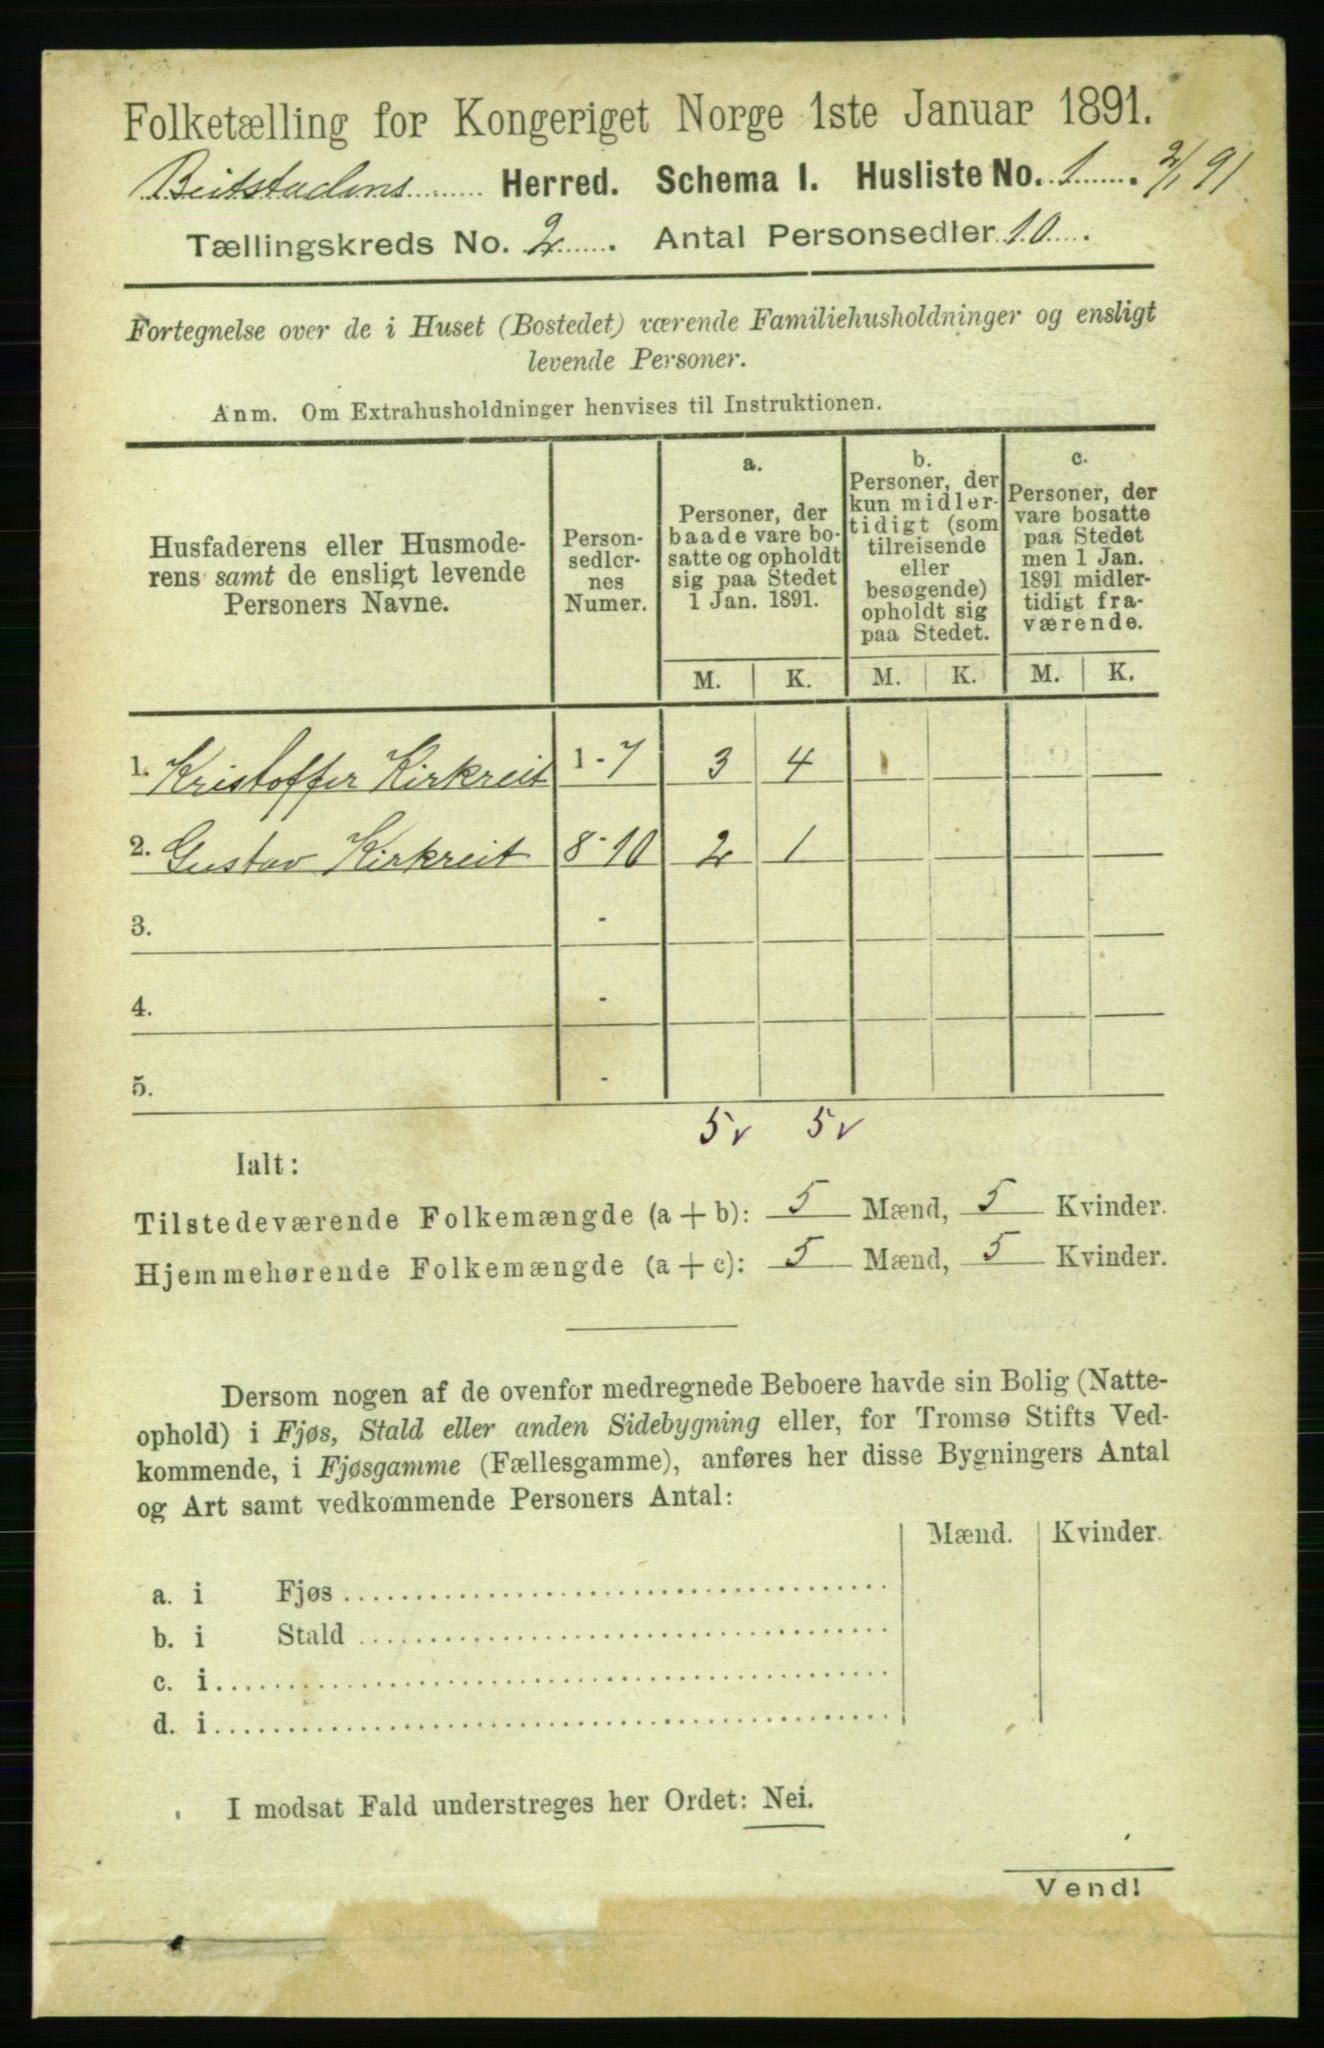 Folketælling for Kongeriget Norge 1ste Januar 1891.
Beitstadens Herred. Schema I. Husliste No. 1. 2/1 91
Tællingskreds No. 2. Antal Personsedler 10.
Fortegnelse over de i Huset (Bostedet) værende Familiehusholdninger og ensligt
levende Personer.
Anm. Om Extrahusholdninger henvises til Instruktionen.
Husfaderens eller Husmode-
rens samt de ensligt levende
Personers Navne.
Person-
sedler-
nes
Numer.
a.
Personer, der
baade vare bo-
satte og opholdt
sig paa Stedet
1 Jan. 1891.
b.
Personer, der
kun midler-
tidigt (som
tilreisende
eller
besøgende)
opholdt sig
paa Stedet.
c.
Personer, der
vare bosatte
paa Stedet
men 1 Jan.
1891 midler-
tidigt fra-
værende.
M. K. M. K. M. K.
1. Kristoffer Kirkreit 1-7 3 4
2. Gustav Kirkreit 8-10 2 1
3. -
4. -
5. -
5 v 5 v
Ialt:
Tilstedeværende Folkemængde (a + b): 5 Mænd, 5 Kvinder.
Hjemmehørende Folkemængde (a + c): 5 Mænd, 5 Kvinder.
Dersom nogen af de ovenfor medregnede Beboere havde sin Bolig (Natte-
ophold) i Fjøs, Stald eller anden Sidebygning eller, for Tromsø Stifts Ved-
kommende, i Fjøsgamme (Fællesgamme), anføres her disse Bygningers Antal
og Art samt vedkommende Personers Antal:
Mænd. Kvinder.
a. i Fjøs
b. i Stald
c. i
d. i
I modsat Fald understreges her Ordet: Nei.
Vend!